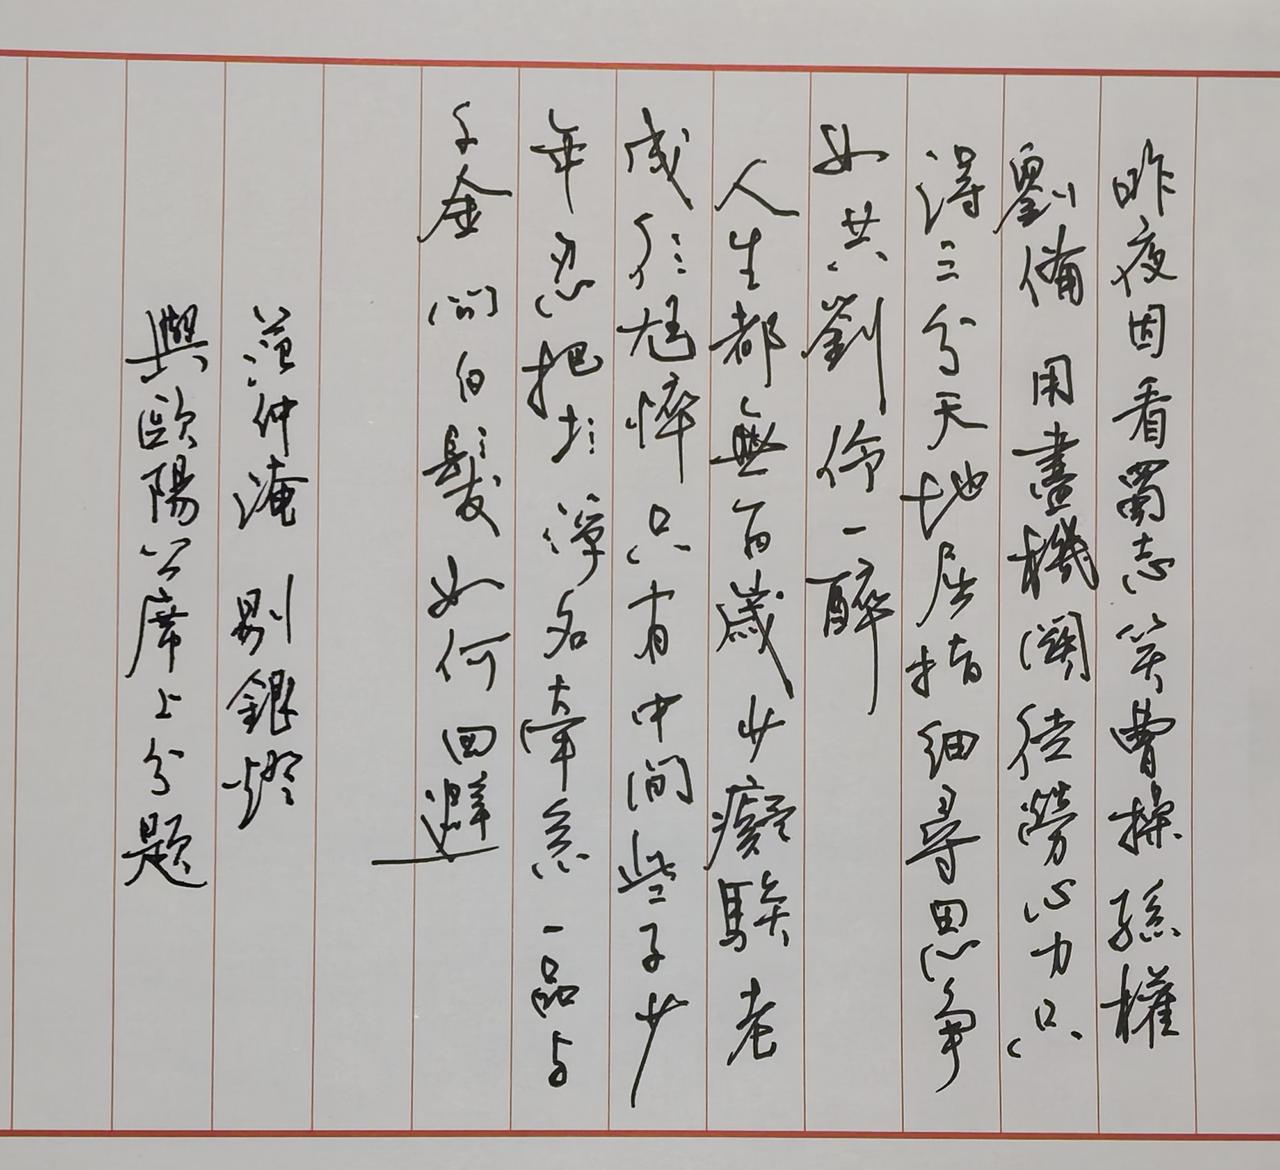 昨夜因看蜀志笑曹操孫權
劉備用盡機關徒勞心力只
得三分天地屈指細尋思爭
如共劉伶一醉
人生都無百歲少癡騃老
成尪悴只有中間些子少
年忍把浮名牽系一品与
千金問白髮如何回避
范仲淹剔銀燈
與歐陽公席上分題